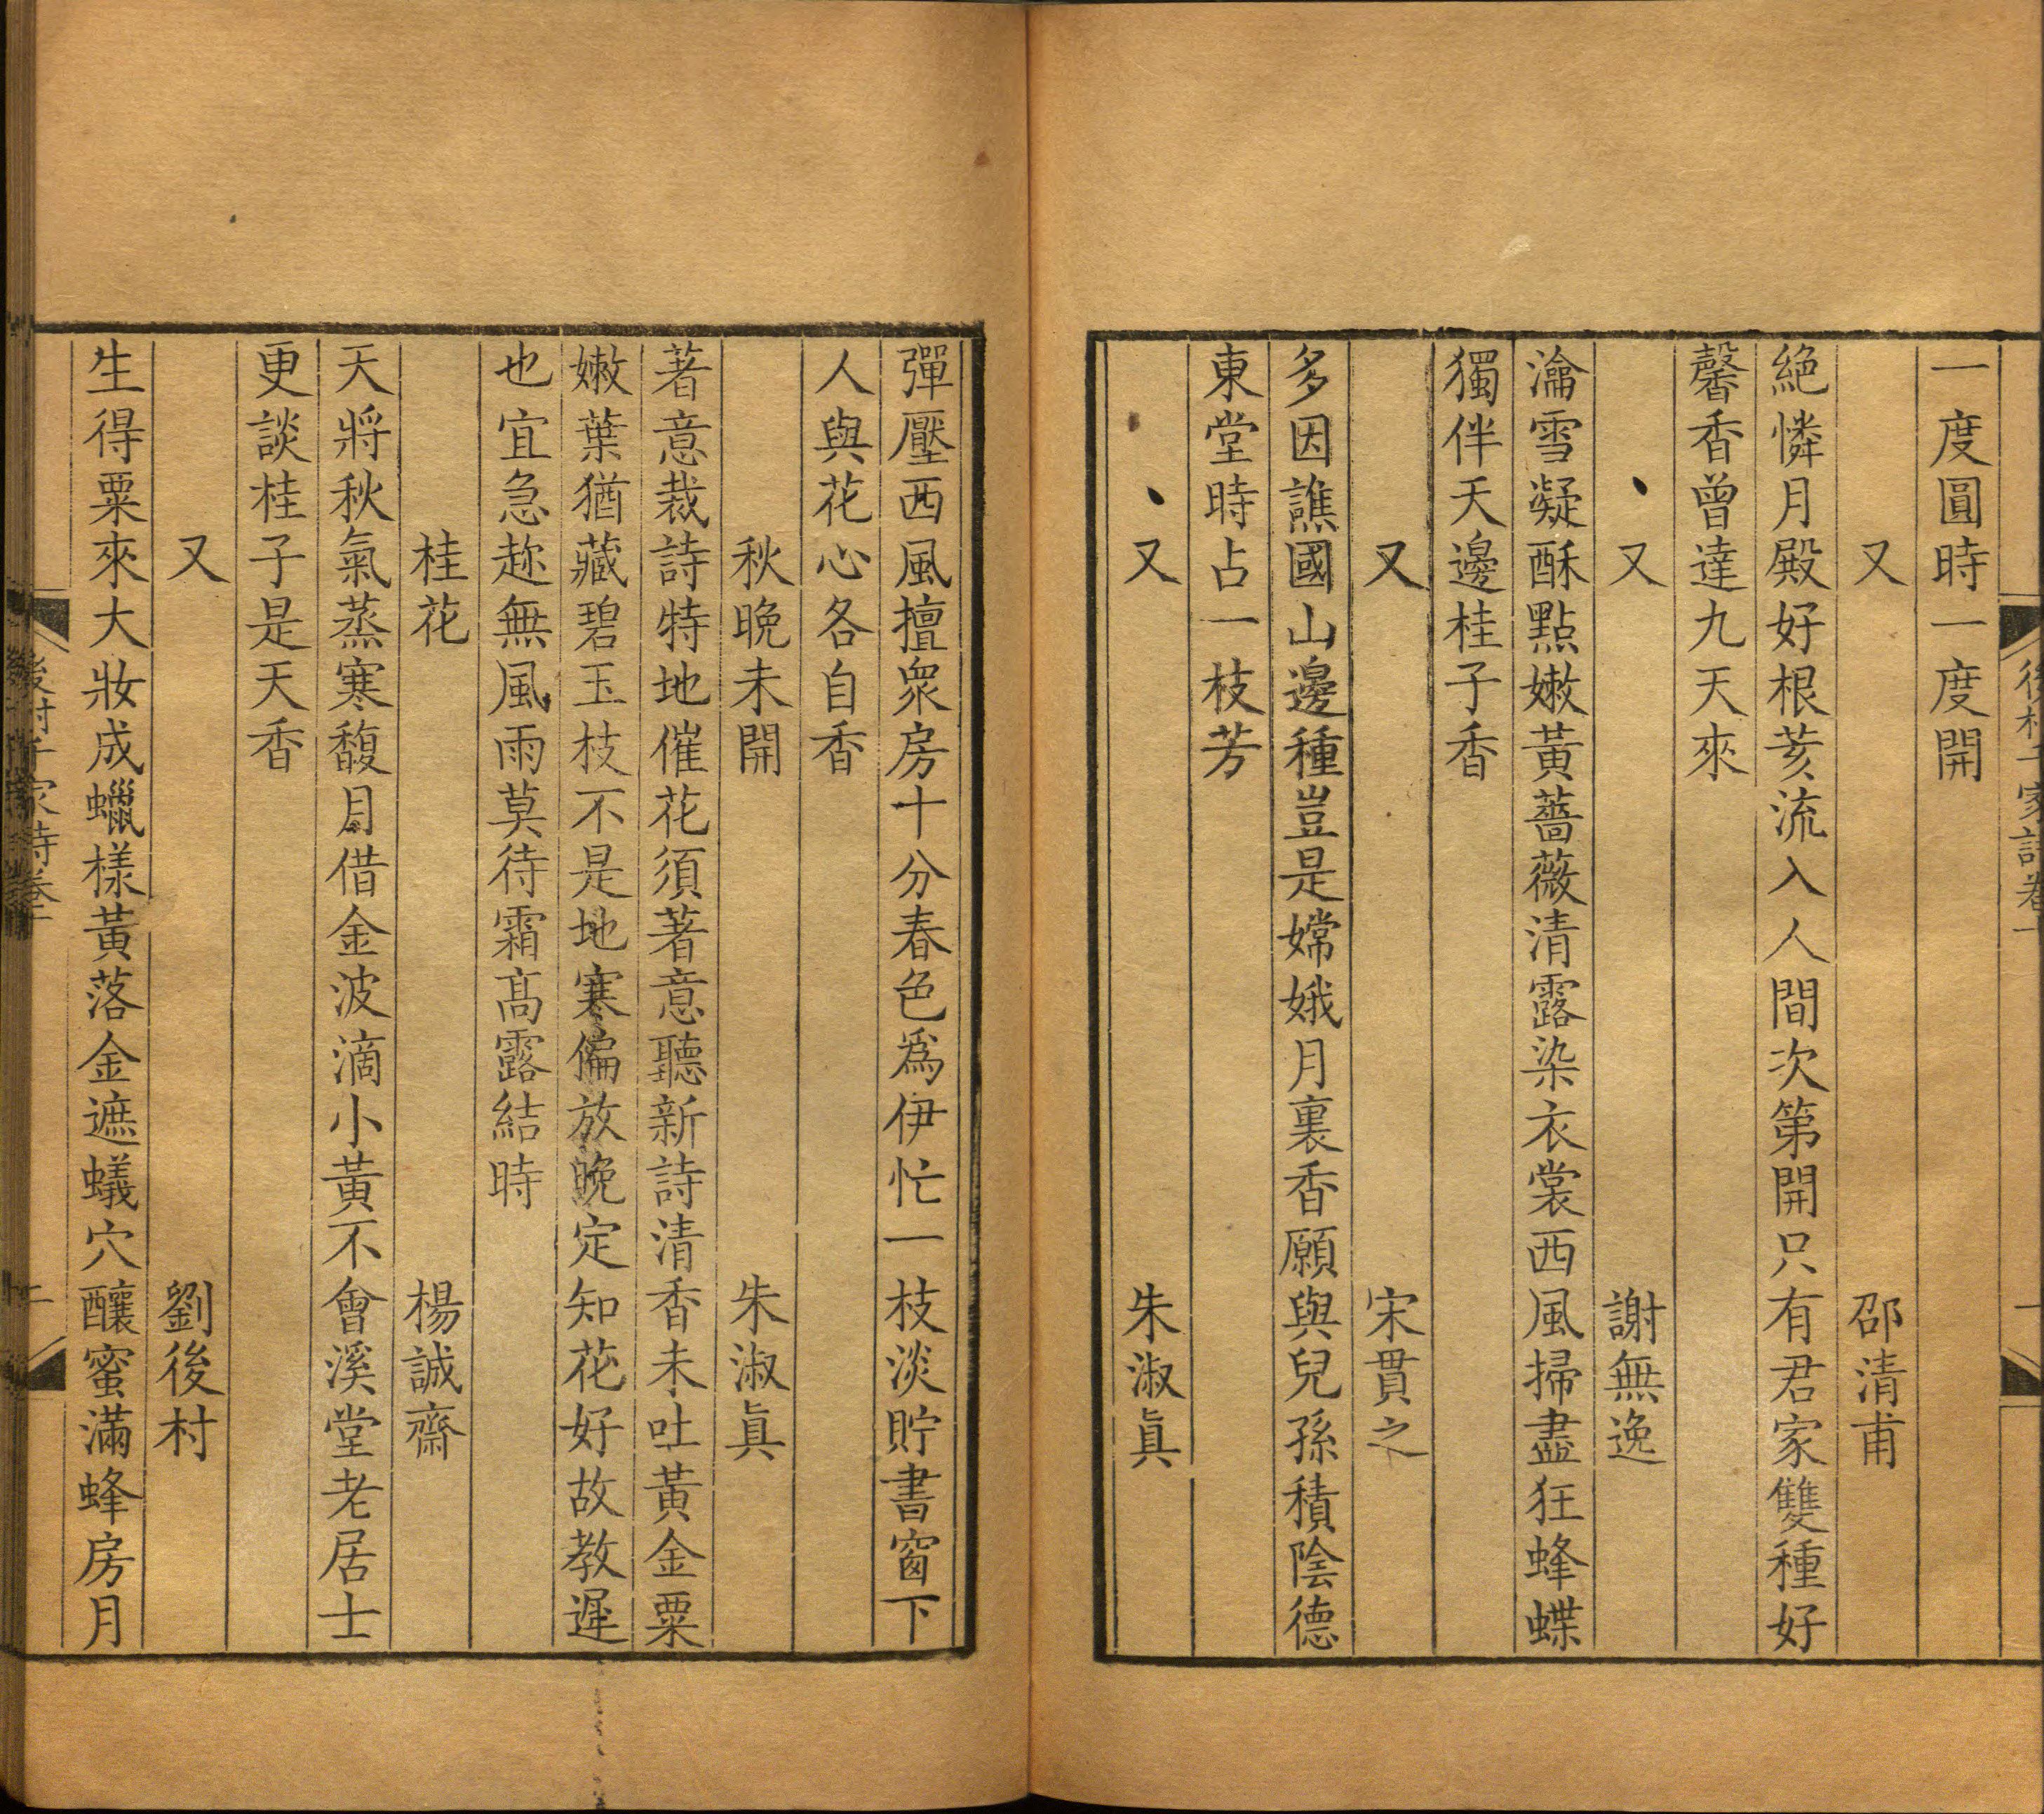 一度圓時一度開
又 邵清甫
絶憐月殿好根荄流入人間次第開只有君家雙種好
馨香曾達九天來
又 謝無逸
瀹雪凝酥點嫩黃薔薇清露染衣裳西風掃盡狂蜂蝶
獨伴天邊桂子香
又 宋貫之
多因譙國山邊種豈是嫦娥月裏香願與兒孫積陰德
東堂時占一枝芳
又 朱淑眞
彈壓西風擅衆房十分春色爲伊忙一枝淡貯書窗下
人與花心各自香
秋晚未開 朱淑眞
著意裁詩特地催花須著意聽新詩清香未吐黃金粟
嫩葉猶藏碧玉枝不是地寒偏放晚定知花好故教遲
也宜急趂無風雨莫待霜髙露結時
桂花 楊誠齋
天將秋氣蒸寒馥月借金波滴小黃不會溪堂老居士
更談桂子是天香
又 劉後村
生得粟來大妝成蠟樣黃落金遮蟻穴釀蜜滿蜂房月